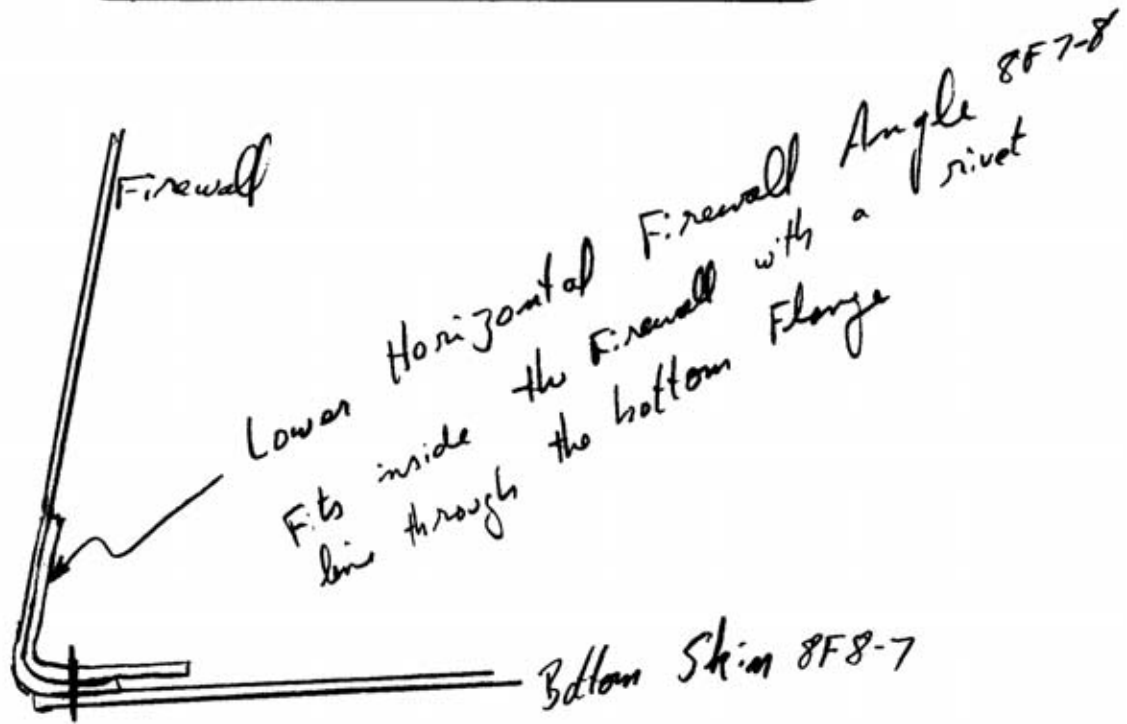 Firewall
Lower Horizontal Firewall Angle 8F7-8
Fits inside the Firewall with a rivet
line through the bottom Flange
Bottom Skin 8F8-7